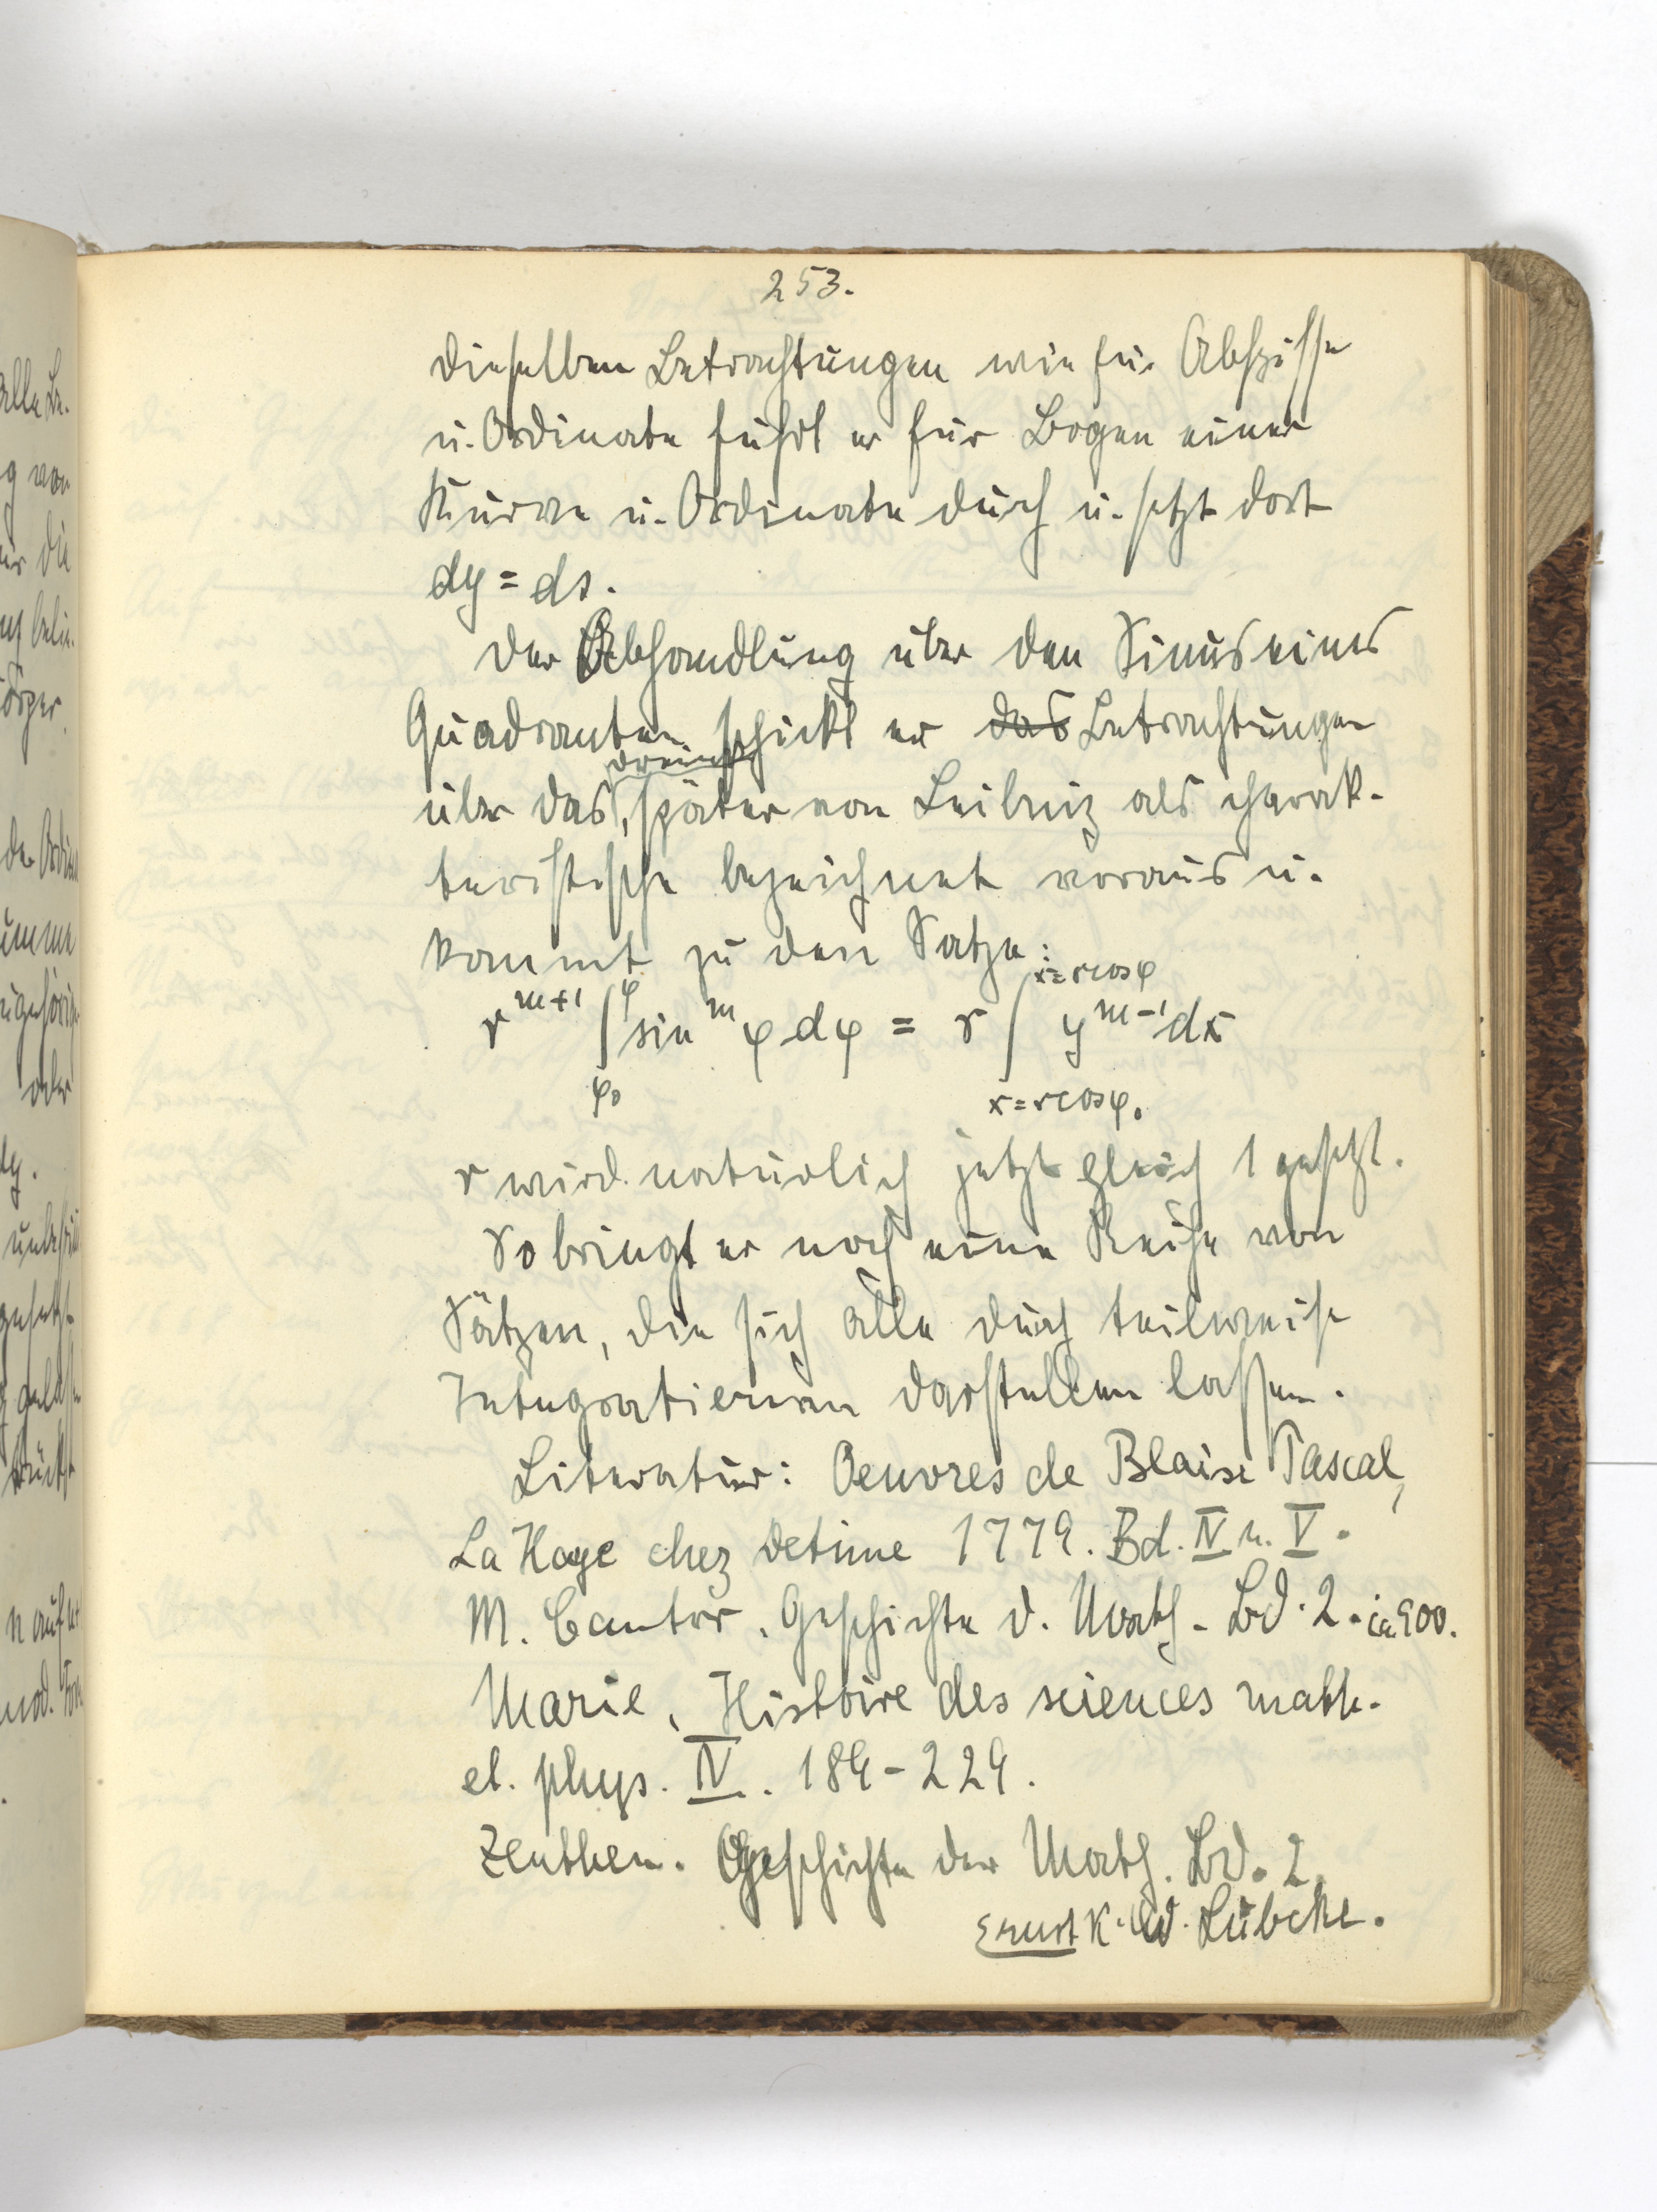 253.
dieselben Betrachtungen wie für Abszisse
u. Ordinate führt er für Bogen einer
Kurve u. Ordinate durch u. setzt dort
dy = ds.
Der Abhandlung über den Sinus eines
Quadranten schickt er das Betrachtungen
dreieck
über das, später von Leibniz als charak-
teristische bezeichnet voraus u.
kommt zu den Satze:
r^{m+1} ∫_{φ₀}^{φ} sin^m φ dφ = r ∫_{x=r cos φ₀}^{x=r cos φ} y^{m-1} dx
r wird natürlich jetzt gleich 1 gesetzt.
So bringt er noch eine Reihe von
Sätzen, die sich alle durch teilweise
Integratieren darstellen lassen.
Literatur: Oeuvres de Blaise Pascal,
La Haye chez Detune 1779. Bd. IV u. V.
M. Cantor, Geschichte d. Math. Bd. 2. ca. 900.
Marie, Histoire des sciences math.
et. phys. IV. 184-229.
Zeuthen. Geschichte der Math. Bd. 2.
Ernst K. W. Lübcke.
alle Be-
g von
die
belie-
örper.
umme
oder
dy.
gesetzt
n auf